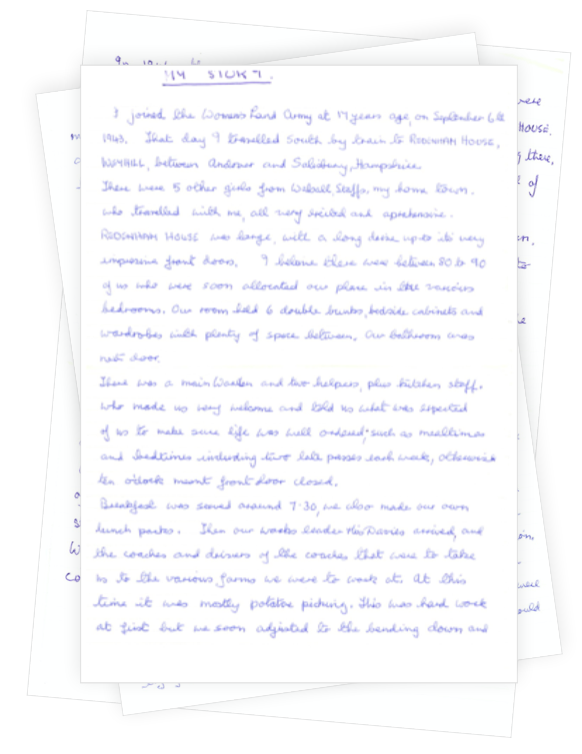 MY STORY.
I joined the Womens Land Army at 17 years age, on September 6th
1943. That day I travelled South by train to REDENHAM HOUSE,
WEYHILL, between Andover and Salisbury, Hampshire
There were 5 other girls from Walsall, Staffs, my home town.
who travelled with me, all very excited and aprehensive.
REDENHAM HOUSE was large, with a long drive up to its very
impressive front doors. I believe there were between 80 to 90
of us who were soon allocated our place in the various
bedrooms. Our room held 6 double bunks, bedside cabinets and
wardrobes with plenty of space between. Our bathroom was
next door.
There was a main Warden and two helpers, plus kitchen staff.
who made us very welcome and told us what was expected
of us to make sure life was well ordered, such as mealtimes
and bedtimes including two late passes each week, otherwise
ten o'clock meant front door closed.
Breakfast was served around 7.30, we also made our own
lunch packs. Then our works leader Miss Davies arrived, and
the coaches and drivers of the coaches that were to take
us to the various farms we were to work at. At this
time it was mostly potatoe picking. This was hard work
at first but we soon adjusted to the bending down and
were
HOUSE,
there,
of